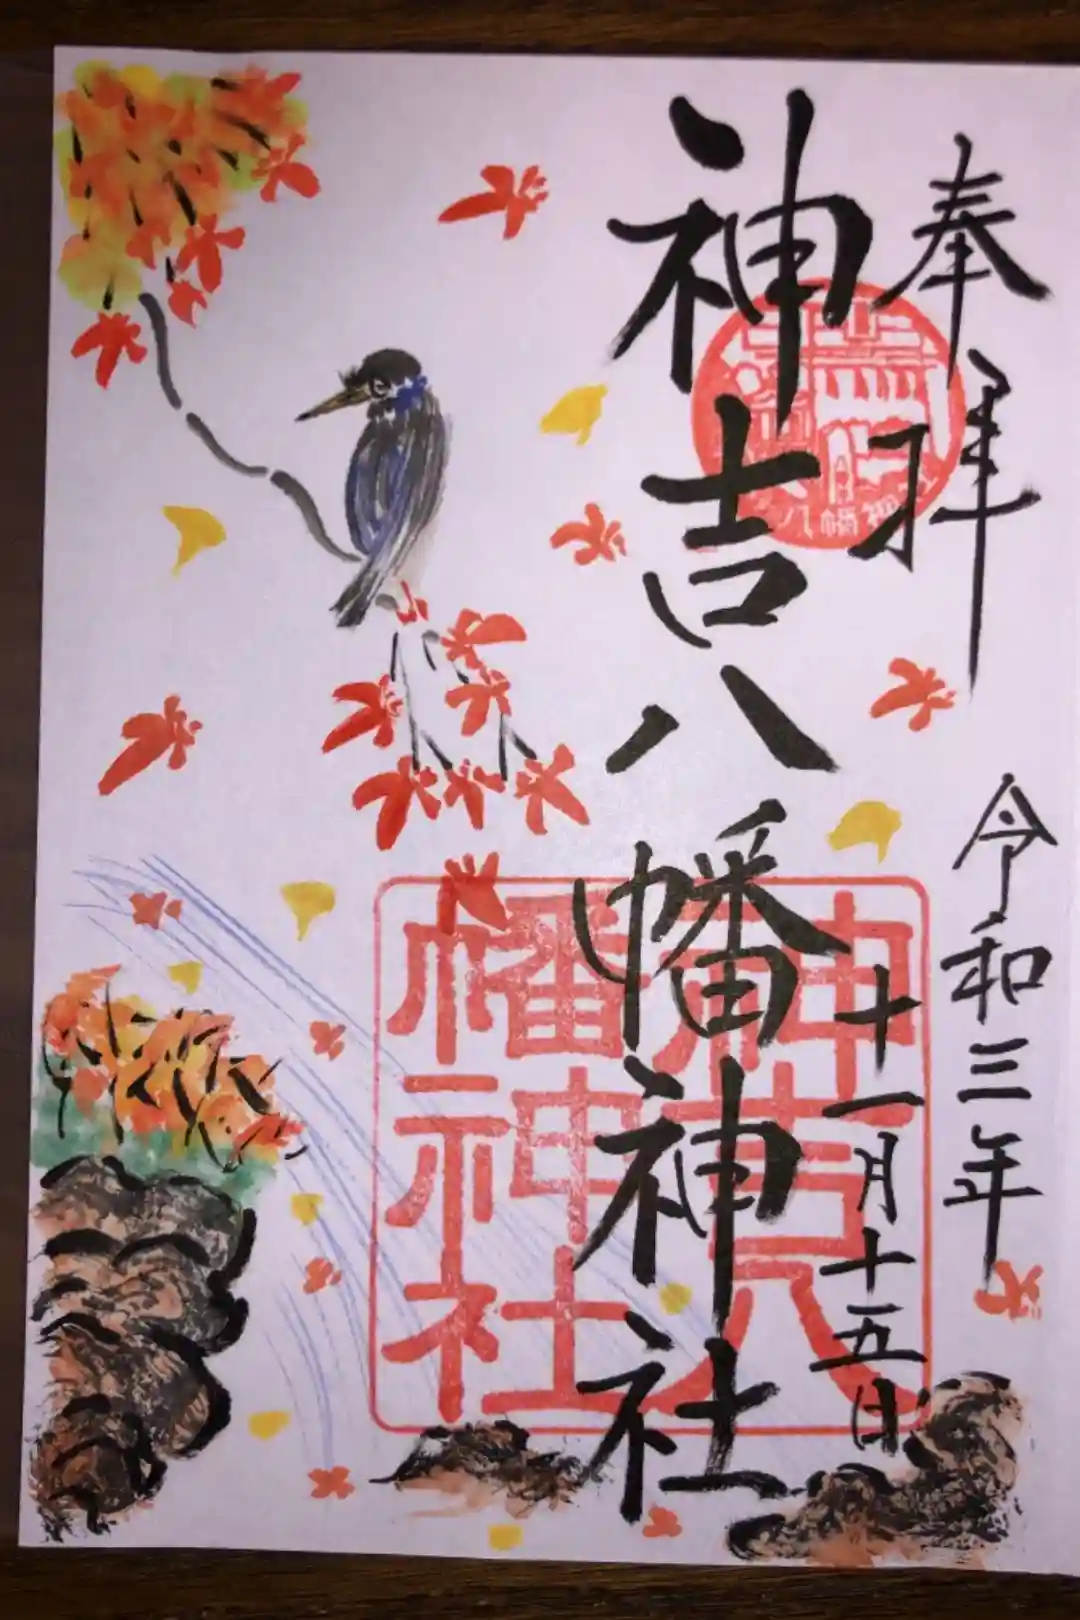 奉拝
令和三年
十一月十五日
神吉八幡神社
神吉八
幡神社
八幡神